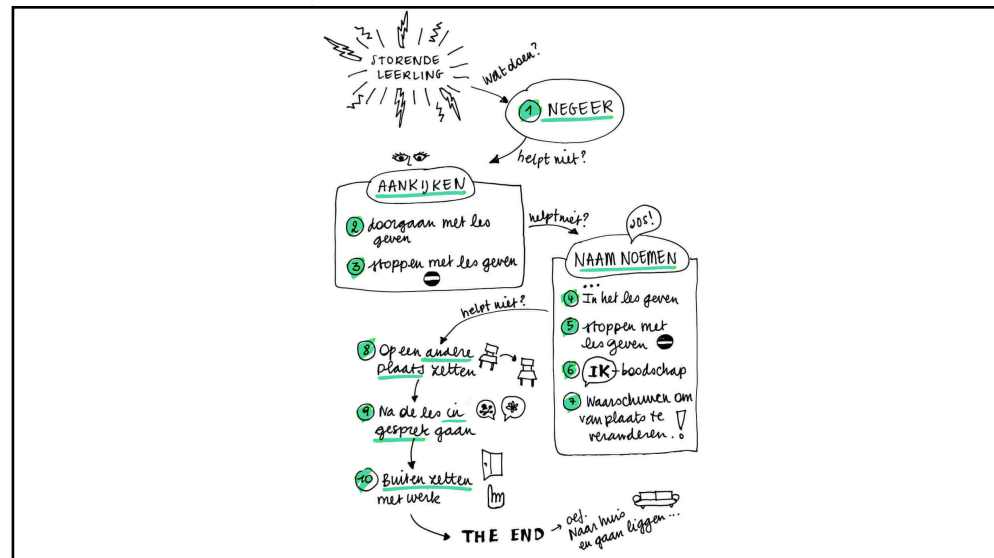 STORENDE
LEERLING
wat doen?
1 NEGEER
helpt niet?
AANKIJKEN
2 doorgaan met les
geven
3 stoppen met les geven
helpt niet?
JOS!
NAAM NOEMEN
...
4 In het les geven
5 stoppen met
les geven
6 IK-boodschap
7 Waarschuwen om
van plaats te
veranderen. !
helpt niet?
8 Op een andere
plaats zetten
9 Na de les in
gesprek gaan
10 Buiten zetten
met werk
THE END
oef.
Naar huis
en gaan liggen...